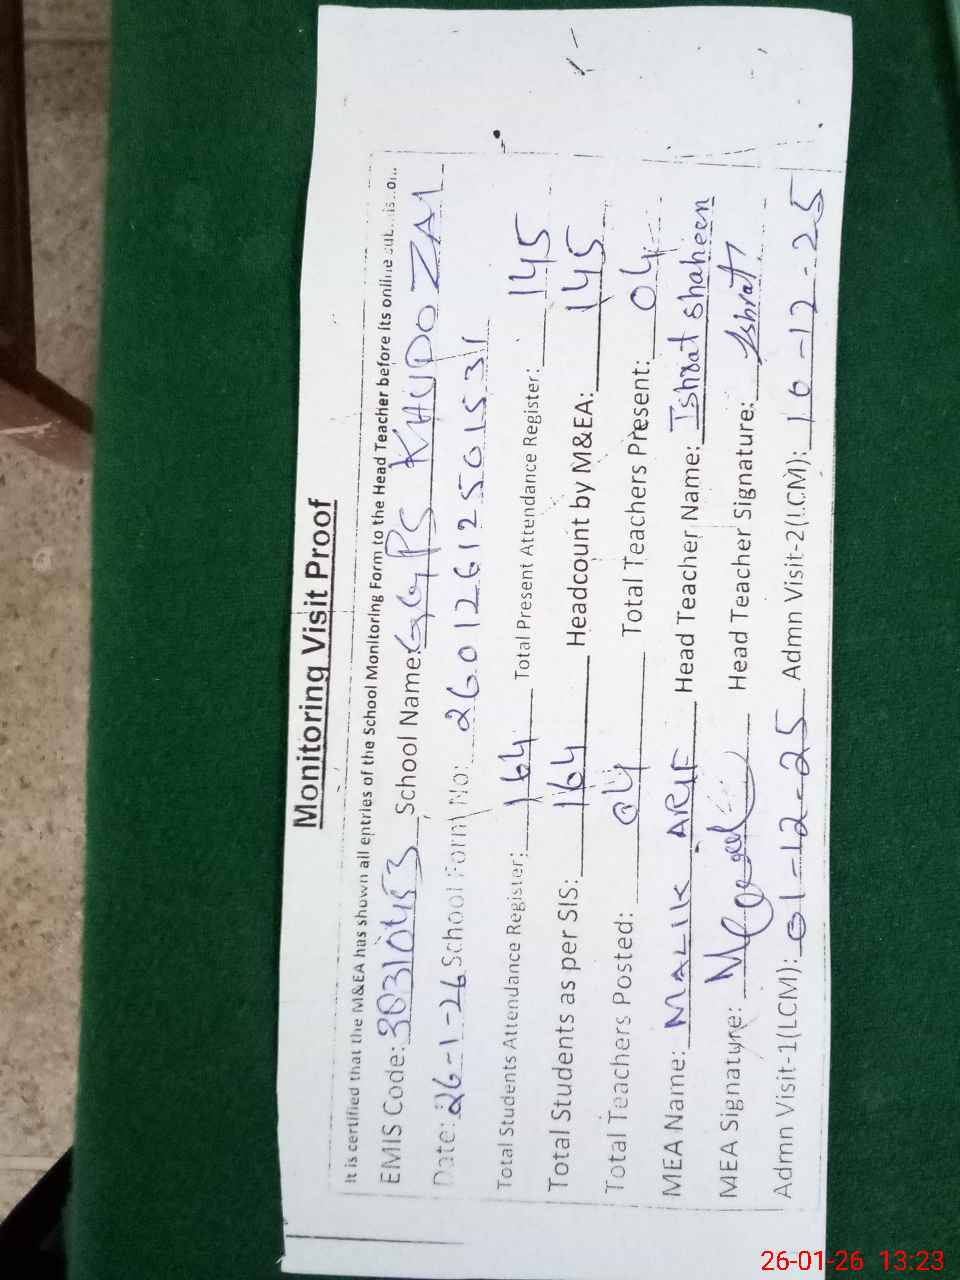 Monitoring Visit Proof
It is certified that the M&EA has shown all entries of the School Monitoring Form to the Head Teacher before its online
EMIS Code: 38310453 School Name: GGPS KHUDOZAI
Date: 26-1-26 School Form No: 26012612501531
Total Students Attendance Register: 164 Total Present Attendance Register: 145
Total Students as per SIS: 164 Headcount by M&EA: 145
Total Teachers Posted: 04 Total Teachers Present: 04
MEA Name: MALIK ARIF Head Teacher Name: Ishrat Shaheen
MEA Signature: Head Teacher Signature: Ishrat
Admn Visit-1(LCM): 01-12-25 Admn Visit-2(LCM): 10-12-25
26-01-26 13:23